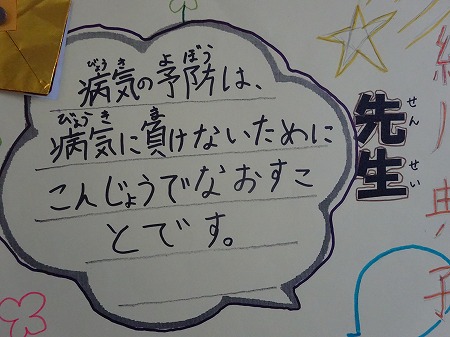 病気の予防は、
病気に負けないために
こんじょうでなおすこ
とです。
先生
びょうき
よぼう
びょうき
ま
せんせい